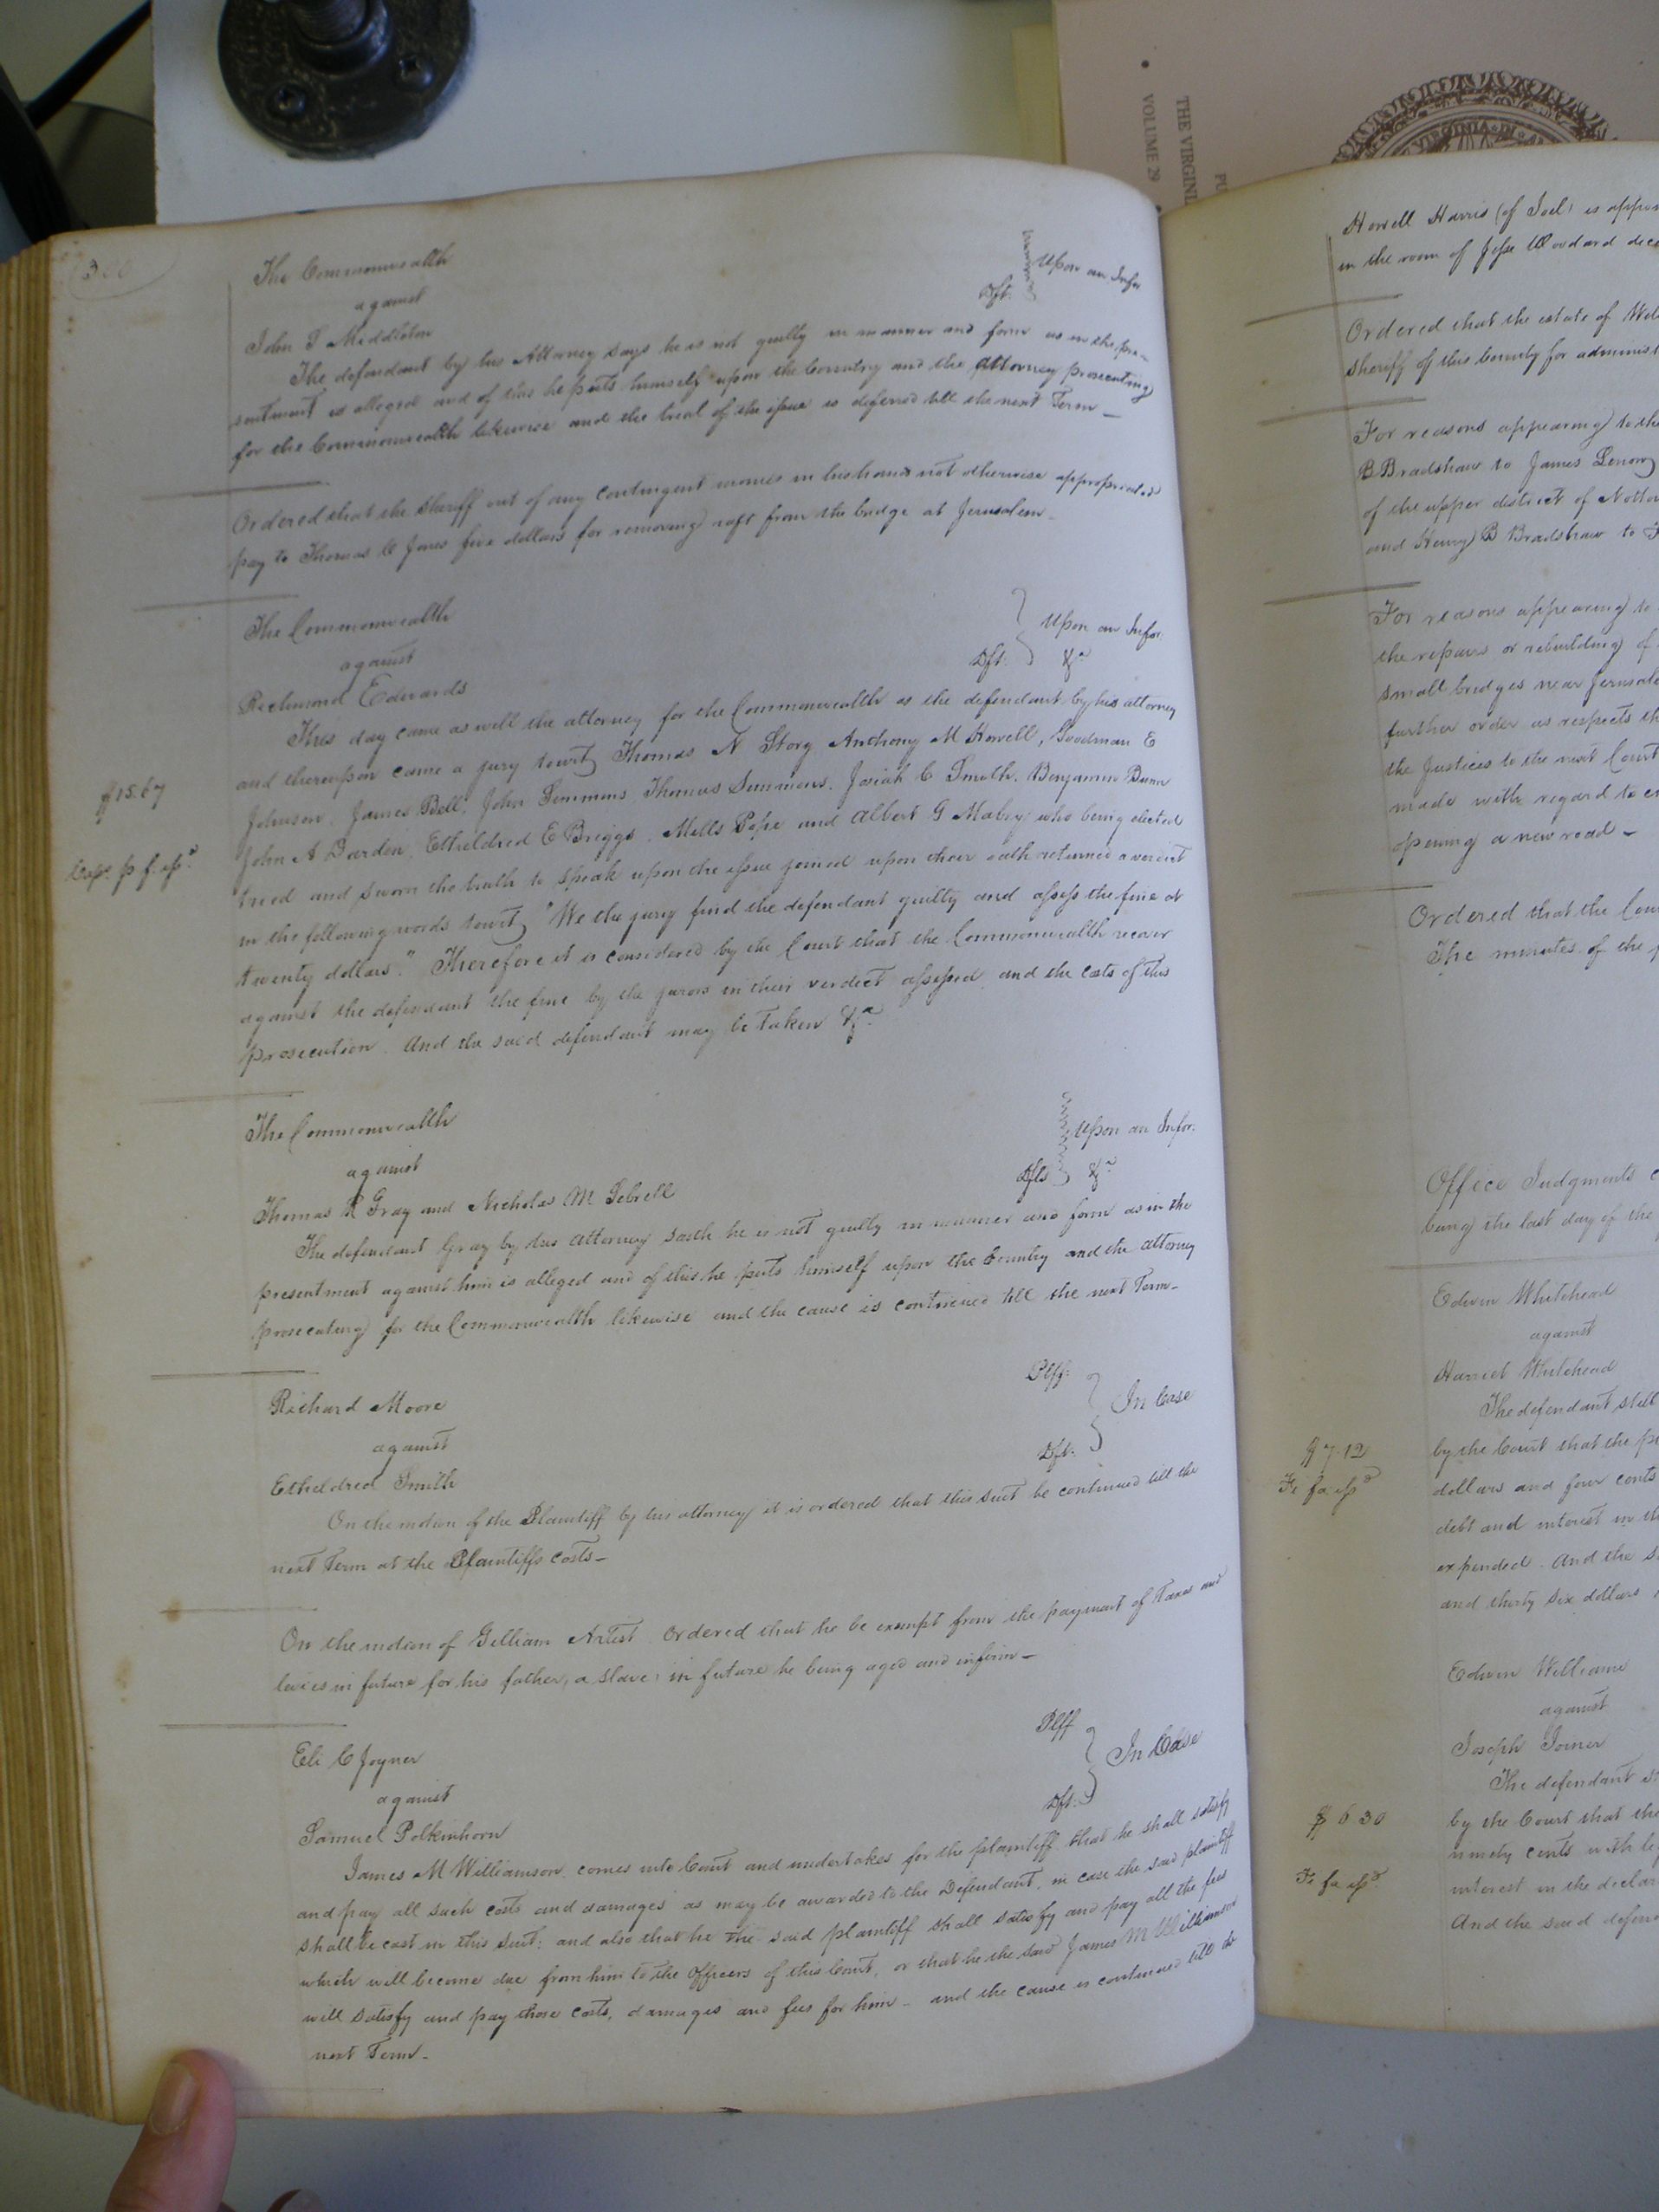 The Commonwealth
against
John S Middleton Dft. Upon an Infor
The defendant by his Attorney says he is not guilty in manner and form as in the pre-
sentment is alleged and of this he puts himself upon the Country and the Attorney prosecuting
for the Commonwealth likewise and the trial of the issue is deferred till the next Term -
Ordered that the Sheriff out of any contingent monies in his hands not otherwise appropriated
pay to Thomas C Jones five dollars for removing raft from the bridge at Jerusalem -
The Commonwealth
against
Richmond Edwards Dft. Upon an Infor. &c
This day came as well the attorney for the Commonwealth as the defendant by his attorney
and thereupon came a jury towit, Thomas N Story Anthony M Howell, Goodman E
$15.67
Johnson, James Bell, John Simmons, Thomas Simmons, Josiah C Smith, Benjamin Bunn
John A Darden, Etheldred E Briggs, Mills Pope and Albert G Mabry who being elected
Cap. p f. issd
tried and sworn the truth to speak upon the issue joined upon their oath returned a verdict
in the following words towit, "We the jury find the defendant guilty and assess the fine at
twenty dollars." Therefore it is considered by the Court that the Commonwealth recover
against the defendant the fine by the jurors in their verdict assessed, and the costs of this
prosecution. And the said defendant may be taken &c
The Commonwealth
against
Thomas R Gray and Nicholas M. Sebrell Dfts Upon an Infor. &c
The defendant Gray by his attorney saith he is not guilty in manner and form as in the
presentment against him is alleged and of this he puts himself upon the Country and the attorney
prosecuting for the Commonwealth likewise and the cause is continued till the next Term -
Richard Moore Plff.
against In Case
Etheldred Smith Dft.
On the motion of the Plaintiff by his attorney it is ordered that this suit be continued till the
next Term at the Plaintiffs costs -
On the motion of Gilliam Artist Ordered that he be exempt from the payment of Taxes and
levies in future for his father, a slave, in future he being aged and infirm -
Eli C Joyner Plff
against In Case
Samuel Polkinhorn Dft.
James M Williamson comes into Court and undertakes for the plaintiff that he shall satisfy
and pay all such costs and damages as may be awarded to the Defendant, in case the said plaintiff
shall be cast in this suit: and also that he the said plaintiff shall satisfy and pay all the fees
which will become due from him to the Officers of this Court, or that he the said James M Williamson
will satisfy and pay those costs, damages and fees for him - and the cause is continued till the
next Term -
THE VIRGINI
VOLUME 29
PU
VIRGINIA
Howell Harris (of Joel) is appoin
in the room of Jesse Woodard dece
Ordered that the estate of Wil
sheriff of this County for administ
For reasons appearing to the
B Bradshaw to James Lenow
of the upper district of Notto
and Henry B Bradshaw to
For reasons appearing to
the repairs or rebuilding of
small bridges near Jerusale
further order as respects th
the Justices to the next Court
made with regard to
opening a new road -
Ordered that the Cou
The minutes of the
Office Judgments
being the last day of the
Edwin Whitehead
against
Harriet Whitehead
The defendant still
$7.12
by the Court that the
Fi fa issd
dollars and four cents
debt and interest in th
expended. And the
and thirty six dollars
Edwin Williams
against
Joseph Joiner
The defendant
$6 30
by the Court that the
ninety cents with
Fi fa issd
interest in the declar
And the said defen